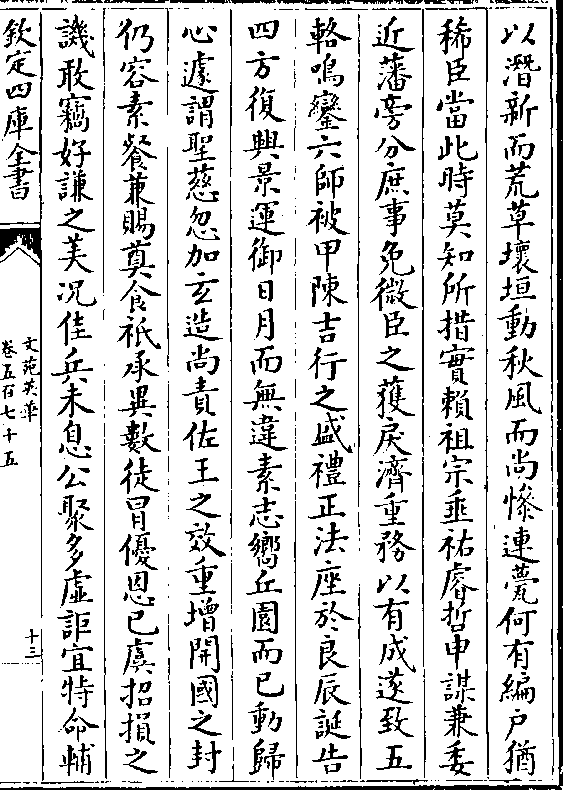 以潛新而荒草壞垣動秋風而尚慘連甍何有編户猶
稀臣當此時莫知所措實賴祖宗垂祐睿哲申謀兼委
近藩旁分庶事免微臣之獲戾濟重務以有成遂致五
輅鳴鑾六師被甲陳吉行之盛禮正法座於良辰誕告
四方復興景運御日月而無違素志嚮丘園而已動歸
心遽謂聖慈忽加玄造尚責佐王之效重增開國之封
仍容素餐兼賜真食祇承異數徒冒優恩已虞招損之
譏敢竊好謙之美况佳兵未息公聚多虛詎宜特命輔
欽定四庫全書
文苑英華
卷五百七十五
十三